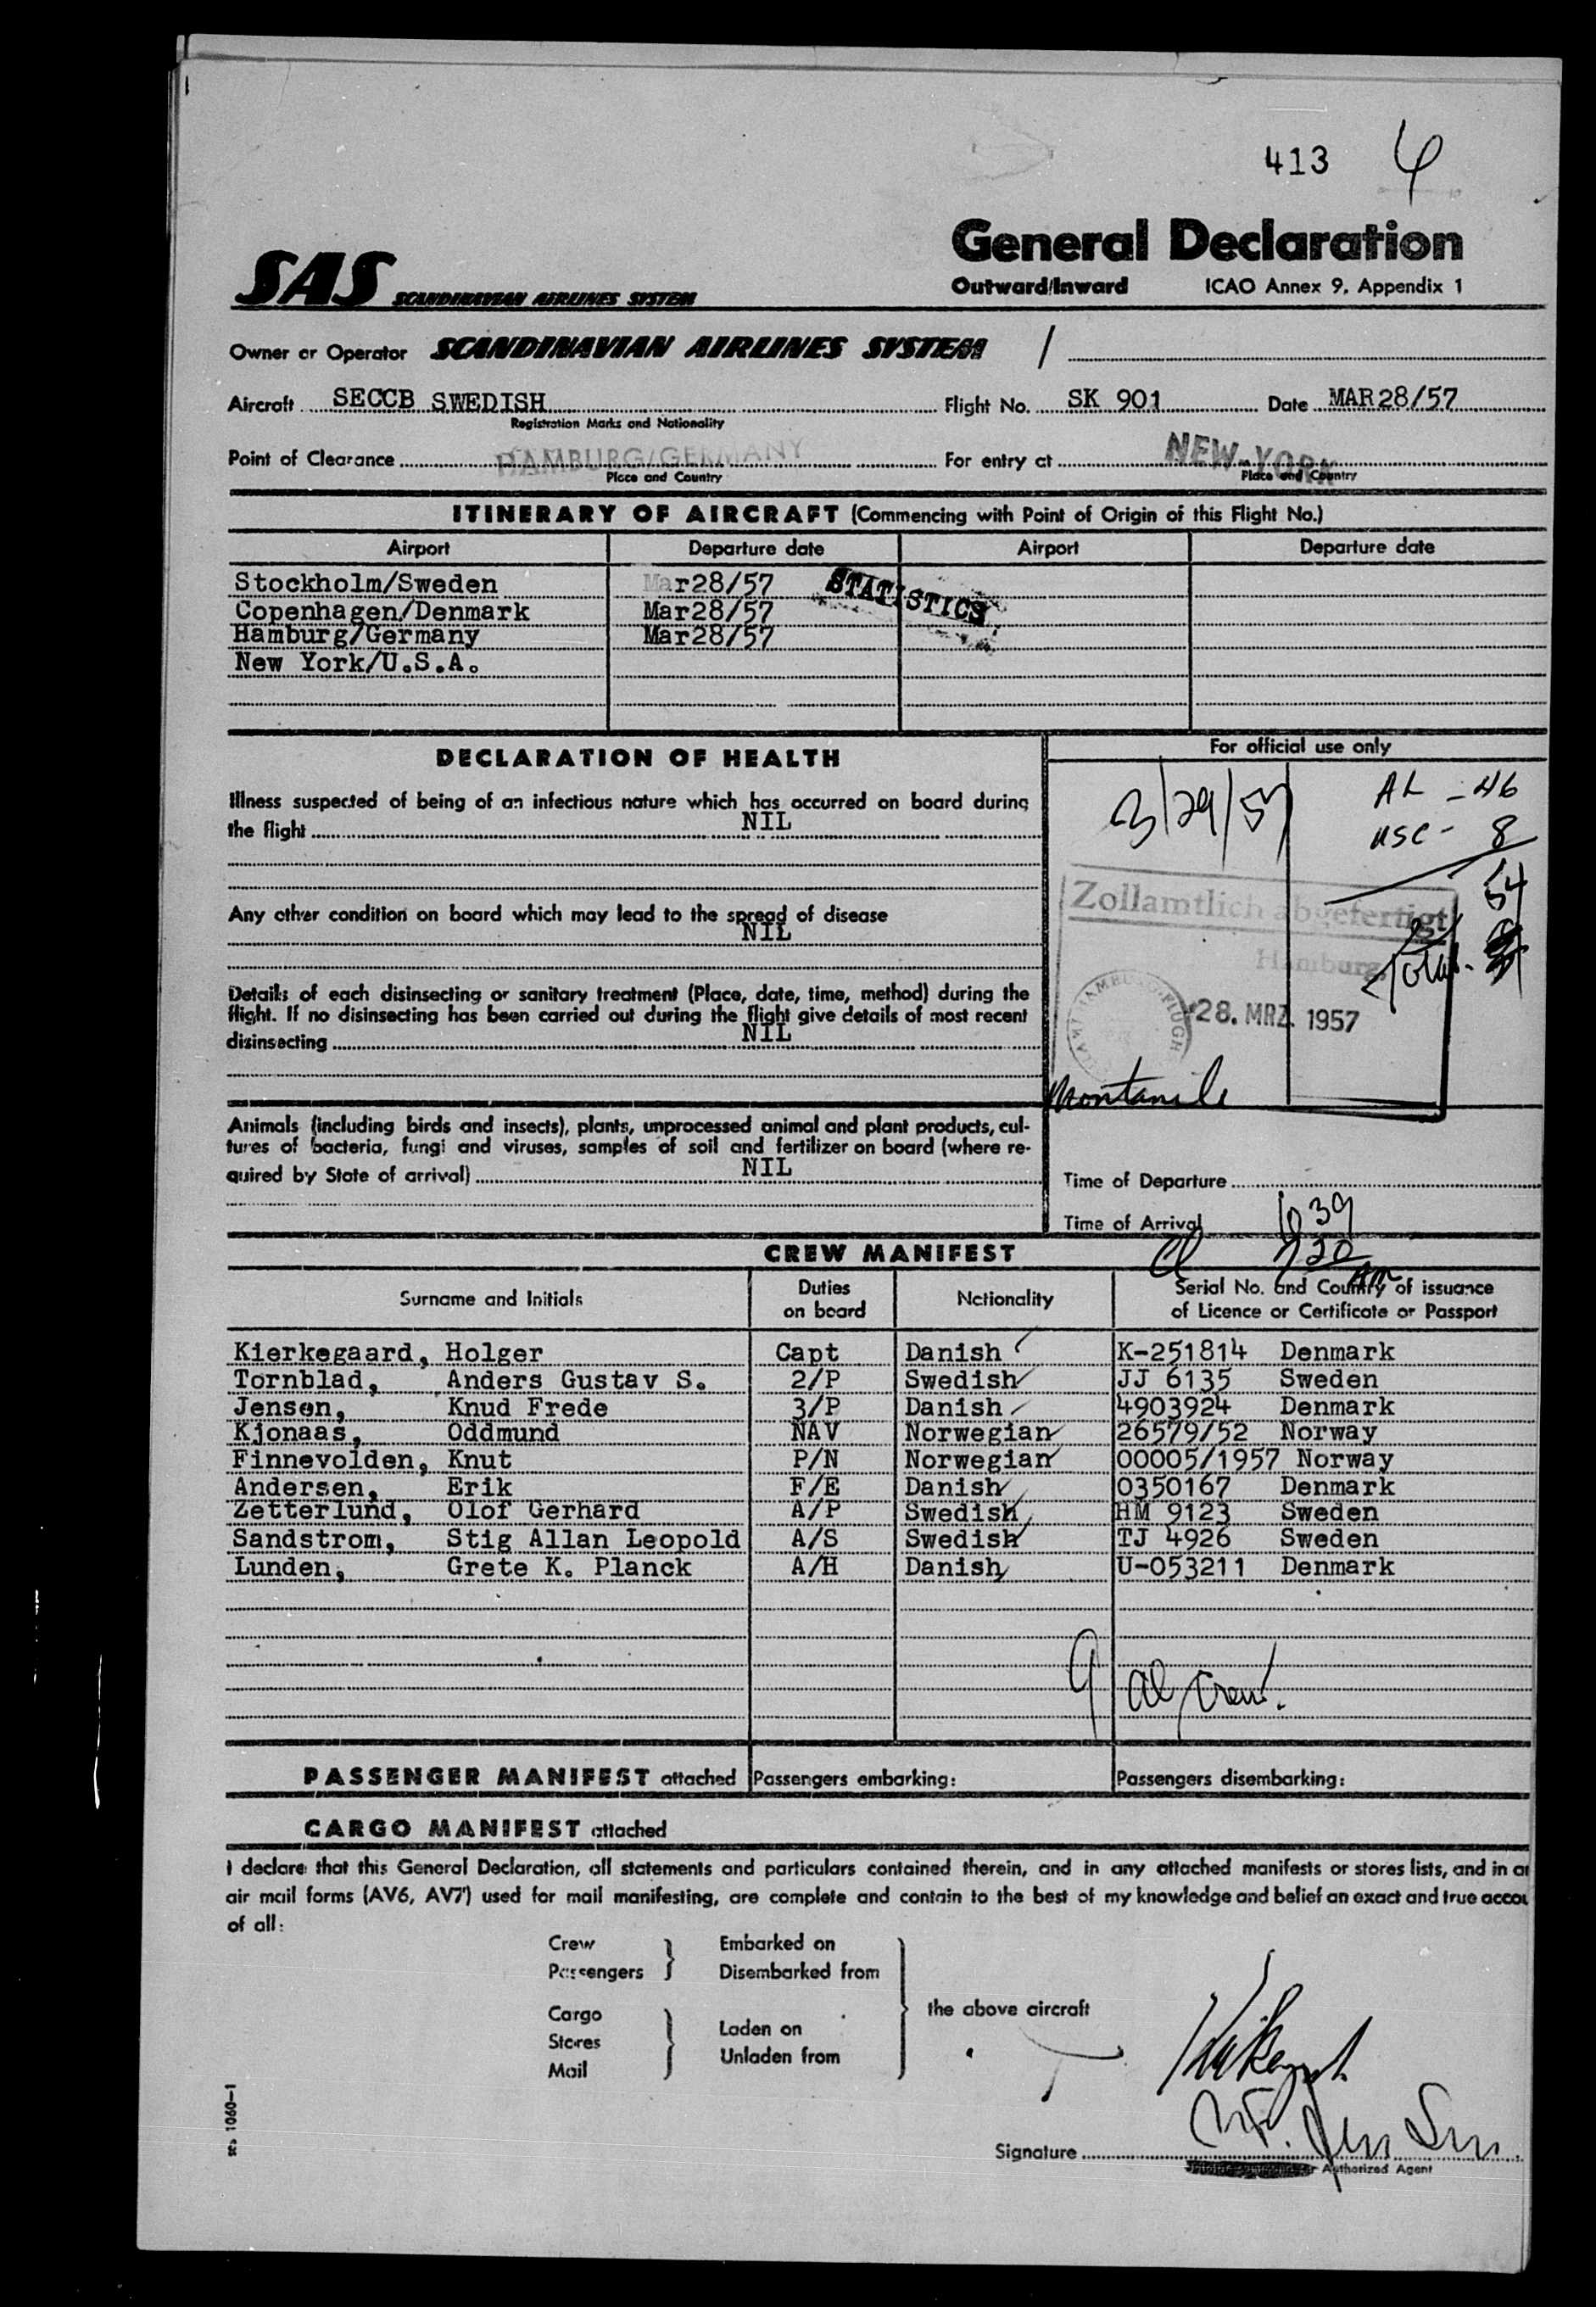 413 4
SAS SCANDINAVIAN AIRLINES SYSTEM
General Declaration
Outward/Inward ICAO Annex 9, Appendix 1
Owner or Operator SCANDINAVIAN AIRLINES SYSTEM /
Aircraft SECCB SWEDISH Flight No. SK 901 Date MAR 28/57
Registration Marks and Nationality
Point of Clearance HAMBURG/GERMANY For entry at NEW-YORK
Place and Country Place and Country
ITINERARY OF AIRCRAFT (Commencing with Point of Origin of this Flight No.)
Airport Departure date Airport Departure date
Stockholm/Sweden Mar28/57 STATISTICS
Copenhagen/Denmark Mar28/57
Hamburg/Germany Mar28/57
New York/U.S.A.
DECLARATION OF HEALTH
Illness suspected of being of an infectious nature which has occurred on board during
the flight NIL
Any other condition on board which may lead to the spread of disease
NIL
Details of each disinsecting or sanitary treatment (Place, date, time, method) during the
flight. If no disinsecting has been carried out during the flight give details of most recent
disinsecting NIL
Animals (including birds and insects), plants, unprocessed animal and plant products, cul-
tures of bacteria, fungi and viruses, samples of soil and fertilizer on board (where re-
quired by State of arrival) NIL
For official use only
3/29/57
AL - 46
USC - 8
54
Total -
Zollamtlich abgefertigt
Hamburg,
28. MRZ. 1957
Montanile
Time of Departure
Time of Arrival 639
Cl 720
AM
CREW MANIFEST
Surname and Initials Duties on board Nationality Serial No. and Country of issuance of Licence or Certificate or Passport
Kierkegaard, Holger Capt Danish K-251814 Denmark
Tornblad, Anders Gustav S. 2/P Swedish JJ 6135 Sweden
Jensen, Knud Frede 3/P Danish 4903924 Denmark
Kjonaas, Oddmund NAV Norwegian 26579/52 Norway
Finnevolden, Knut P/N Norwegian 00005/1957 Norway
Andersen, Erik F/E Danish 0350167 Denmark
Zetterlund, Olof Gerhard A/P Swedish HM 9123 Sweden
Sandstrom, Stig Allan Leopold A/S Swedish TJ 4926 Sweden
Lunden, Grete K. Planck A/H Danish U-053211 Denmark
9 al crew.
PASSENGER MANIFEST attached Passengers embarking: Passengers disembarking:
CARGO MANIFEST attached
I declare that this General Declaration, all statements and particulars contained therein, and in any attached manifests or stores lists, and in a
air mail forms (AV6, AV7) used for mail manifesting, are complete and contain to the best of my knowledge and belief an exact and true accou
of all:
Crew Embarked on
Passengers Disembarked from
the above aircraft
Cargo
Stores
Mail
Laden on
Unladen from
Signature
Authorized Agent
1060—1